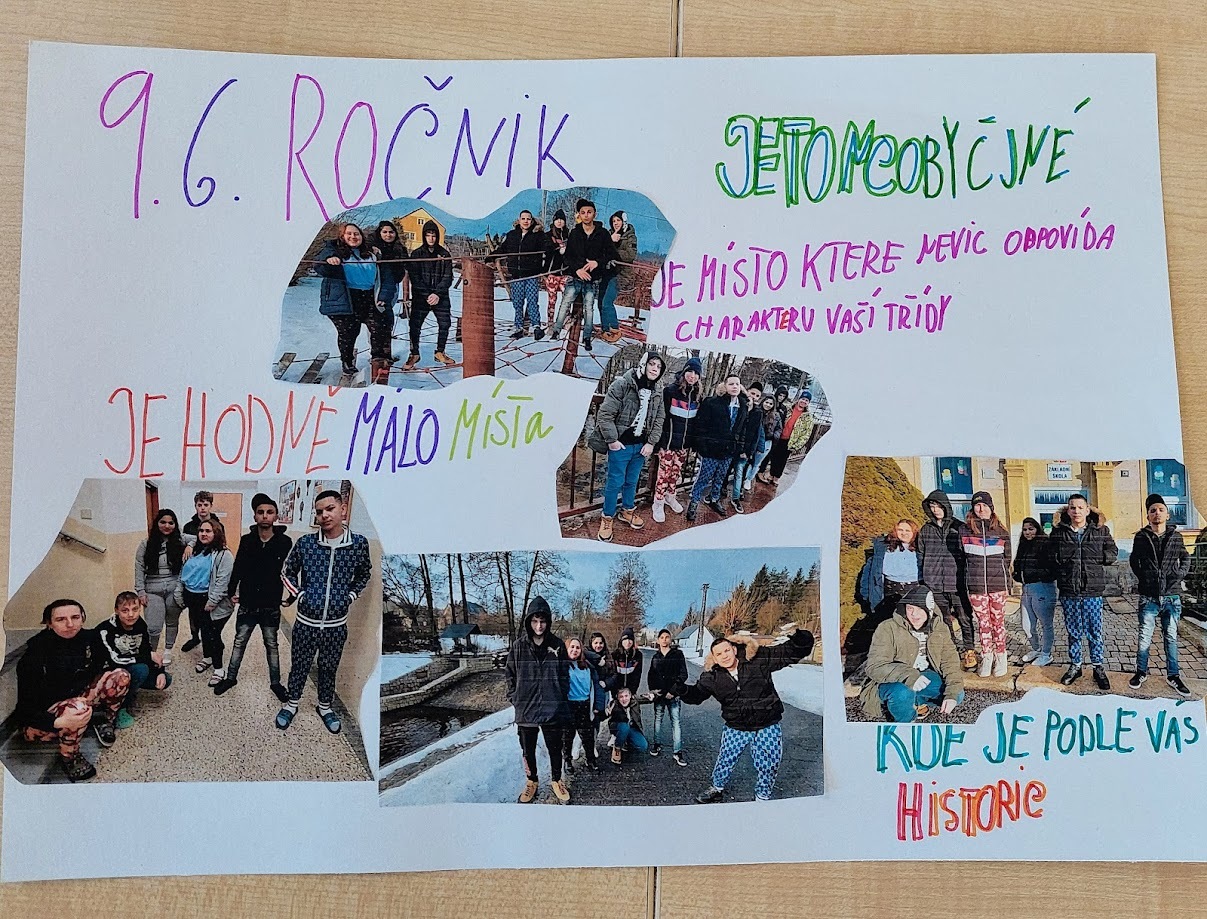 9. 6. ROČNIK
JE TO NĚCO OBYČJNÉ
JE MÍSTO KTERE NEVIC ODPOVÍDA
CHARAKTERU VAŠÍ TŘÍDY
JE HODNĚ MÁLO MÍSTA
ZÁKLADNÍ
ŠKOLA
KDE JE PODLE VÁS
HISTORIE